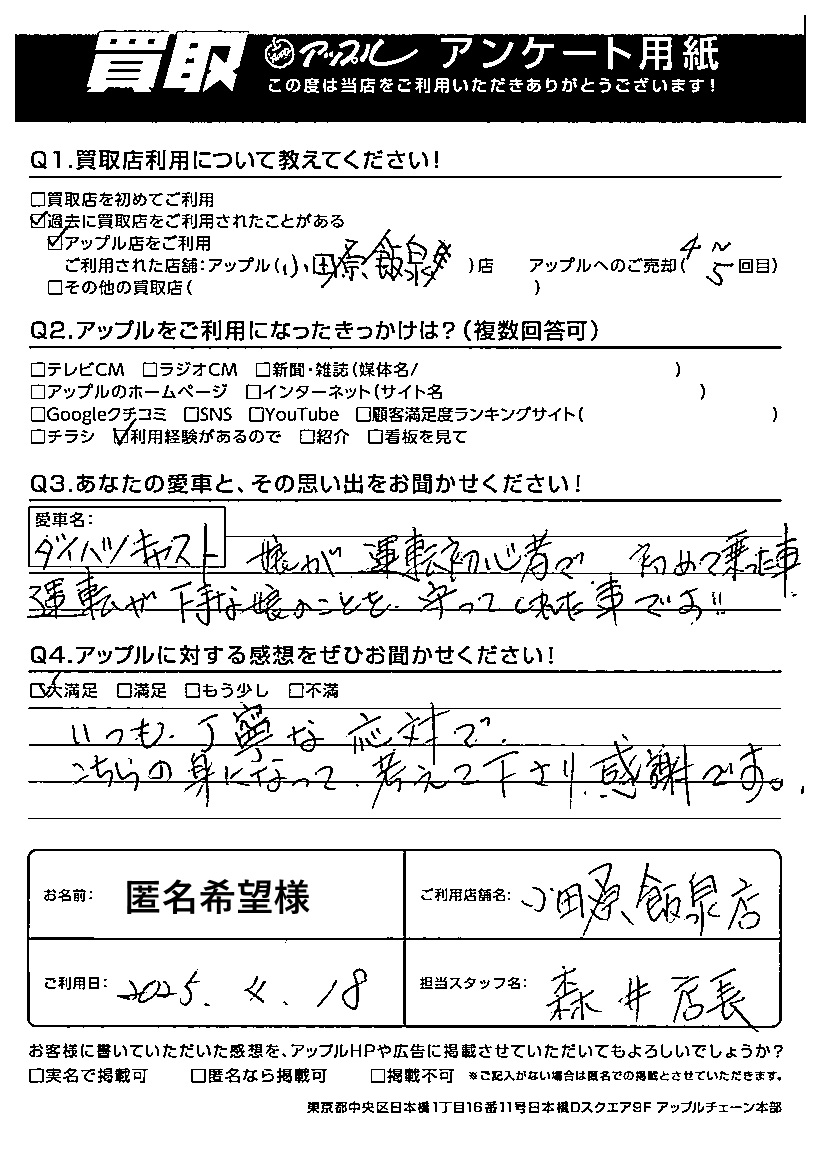 買取 アップル アンケート用紙
この度は当店をご利用いただきありがとうございます!
Q1.買取店利用について教えてください!
□買取店を初めてご利用
☑過去に買取店をご利用されたことがある
☑アップル店をご利用
ご利用された店舗:アップル(小田原飯泉)店 アップルへのご売却(4~5回目)
□その他の買取店( )
Q2.アップルをご利用になったきっかけは?(複数回答可)
□テレビCM □ラジオCM □新聞・雑誌(媒体名/ )
□アップルのホームページ □インターネット(サイト名 )
□Googleクチコミ □SNS □YouTube □顧客満足度ランキングサイト( )
□チラシ ☑利用経験があるので □紹介 □看板を見て
Q3.あなたの愛車と、その思い出をお聞かせください!
愛車名:
ダイハツキャスト 娘が運転初心者で 初めて乗った車
運転が下手な娘のことを、守ってくれた車です!!
Q4.アップルに対する感想をぜひお聞かせください!
☑大満足 □満足 □もう少し □不満
いつも、丁寧な応対で、
こちらの身になって、考えて下さり、感謝です。
お名前: 匿名希望様 ご利用店舗名: 小田原飯泉店
ご利用日: 2025. 4. 18 担当スタッフ名: 森井店長
お客様に書いていただいた感想を、アップルHPや広告に掲載させていただいてもよろしいでしょうか?
□実名で掲載可 □匿名なら掲載可 □掲載不可 ※ご記入がない場合は匿名での掲載とさせていただきます。
東京都中央区日本橋1丁目16番11号日本橋Dスクエア9F アップルチェーン本部